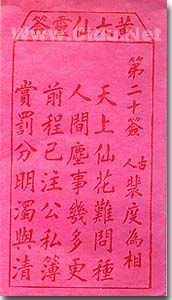 黃大仙靈簽
第二十簽
古人 裴度為相
天上仙花難問種
人間塵事幾多更
前程已注公私簿
賞罰分明濁與清